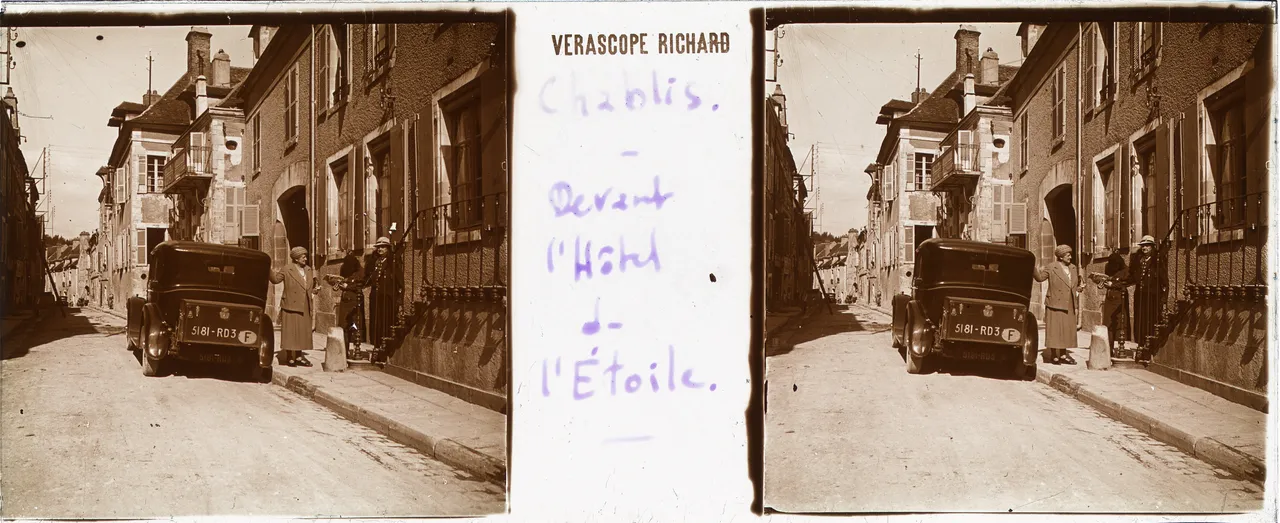 VERASCOPE RICHARD
Chablis.
-
Devant
l'Hôtel
de
l'Étoile.
5181-RD3 F
5181-RD3 F